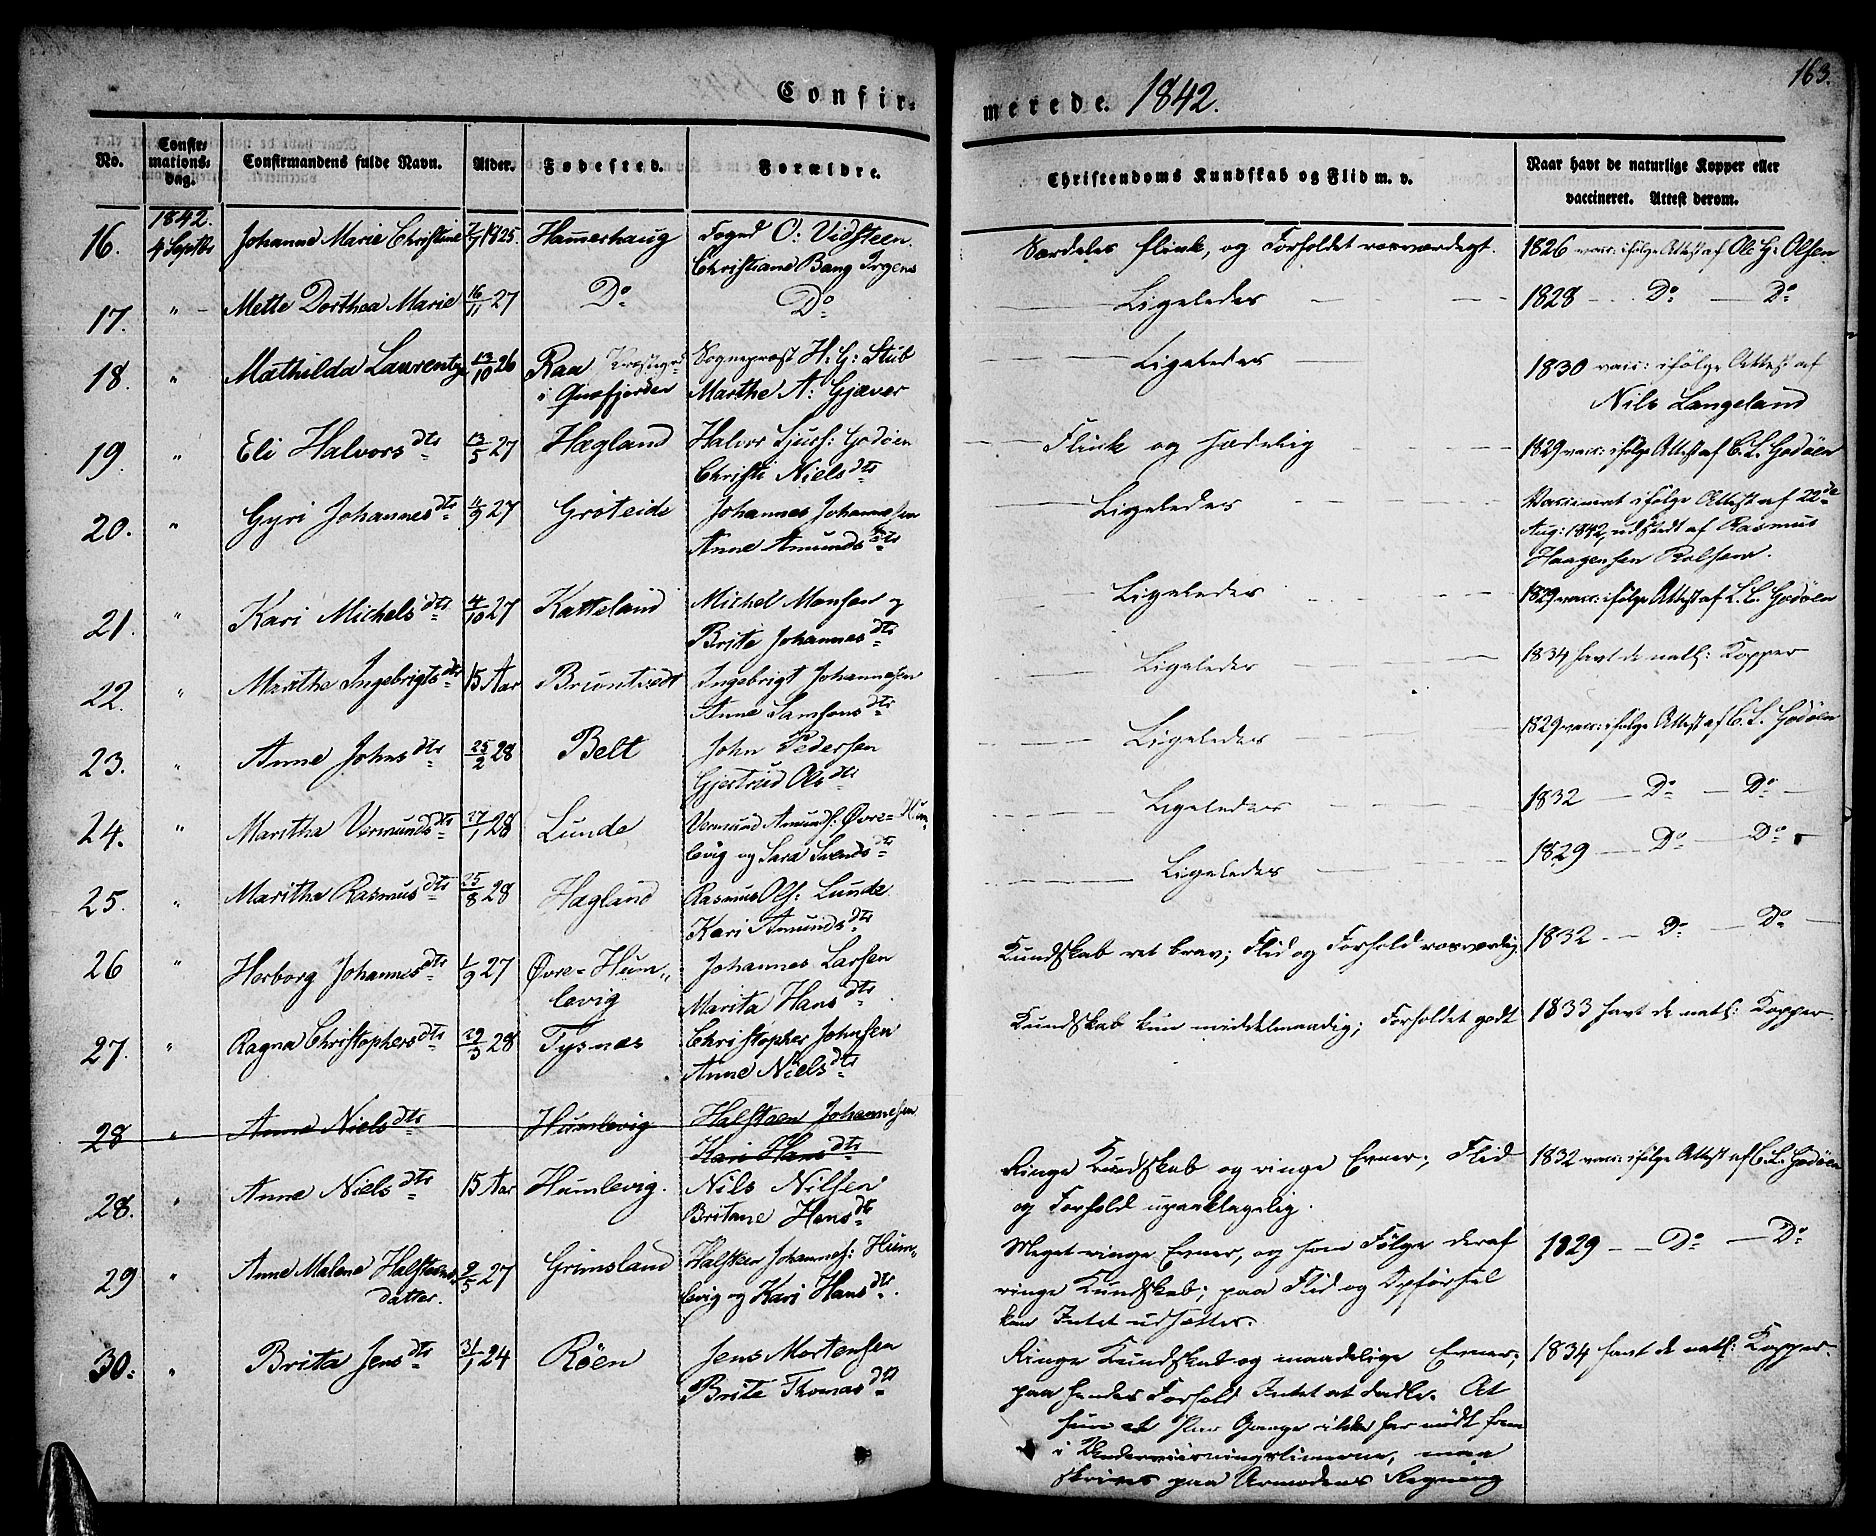 163.
Confir-
merede. 1842.
No.
Confir-
mations-
dag.
Confirmandens fulde Navn.
Alder.
Fødested.
Forældre.
Christendoms Kundskab og Flid m. v.
Naar havt de naturlige Kopper eller
vaccineret. Attest derom.
1842.
16. 4 Septbr Johanne Marie Christine 1825 Hammerhaug Fogd O: Vidsteen.
Christiane Bang Irgens
Særdeles flink, og Forholdet rosværdigt. 1826 vacc: ifølge Attest af Ole G: Olsen
17. " Mette Dorthea Marie 16/11 27 Do Do Ligeledes 1828 Do Do
18. " Mathilda Laurentze 13/10 26 Raa Præstegrd
i Qvæfjorden
Sogneprest H: G: Stub
Marthe A: Gjæver
Ligeledes 1830 vacc: ifølge Attest af
Nils Langeland
19. " Eli Halvorsdtr 13/5 27 Hægland Halvor Sjurs: Godøen
Christi Nielsdtr
Flink og sædelig 1829 vacc: ifølge Attest af C. L. Godøen
20. " Gyri Johannesdtr 4/9 27 Groteide Johannes Johannessen
Anne Amundsdtr
Ligeledes Vaccineret ifølge Attest af 22de
Aug: 1842, udstedt af Rasmus
Haagensen Rolfsen.
21. " Kari Michelsdtr 4/10 27 Katteland Michel Monsen og
Brite Johannesdtr
Ligeledes 1829 vacc: ifølge Attest af L. C. Godøen
22. " Marthe Ingebrigtsdtr 15 Aar Bruntvedt Ingebrigt Johannessen
Anne Samsonsdtr
Ligeledes 1834 havt de natl: Kopper
23. " Anne Johnsdtr 25/2 28 Belt John Pedersen
Gjertrud Olsdtr
Ligeledes 1829 vacc: ifølge Attest af C. L. Godøen
24. " Maritha Vermundsdtr 27/1 28 Lunde Vermund Amunds: Øvre-Hum-
levig og Sara Svendsdtr
Ligeledes 1832 Do Do
25. " Maritha Rasmusdtr 25/8 28 Hægland Rasmus Ols: Lunde
Kari Amundsdtr
Ligeledes 1829 Do Do
26 " Herborg Johannesdtr 1/9 27 Øvre-Hum-
levig
Johannes Larsen
Marita Hansdtr
Kundskab ret brav; Flid og Forhold rosværdig 1832 Do Do
27. " Ragna Christophersdtr 29/3 28 Tysnæs Christopher Johnsen
Anne Nielsdtr
Kundskab kun middelmaadig; Forholdet godt 1833 havt de natl: Kopper.
28 " Anne Nielsdtr Humlevig Halsteen Johannessen
Kari Hansdtr
28. " Anne Nielsdtr 15 Aar Humlevig. Nils Nilsen
Britane Hansdtr
Ringe Kundskab og ringe Evner; Flid
og Forhold upaaklagelig.
1832 vacc: ifølge Attest af C. L. Godøen
29 " Anne Malene Halsteens-
datter.
9/5 27 Grimsland Halsteen Johanness: Hum-
levig og Kari Hansdtr.
Meget ringe Evner, og som Følge deraf
ringe Kundskab; paa Flid og Opførsel
kan Intet udsættes.
1829 Do Do
30. " Brita Jensdtr 31/1 24 Røen Jens Mortensen
Brite Thomasdtr
Ringe Kundskab og maadelige Evner;
paa hendes Forhold Intet at dadle. At
hun et Par Gange ikke har mødt frem
i Underviisningstimerne, maa
skrives paa Armodens Regning
1834 havt de natl: Kopper.